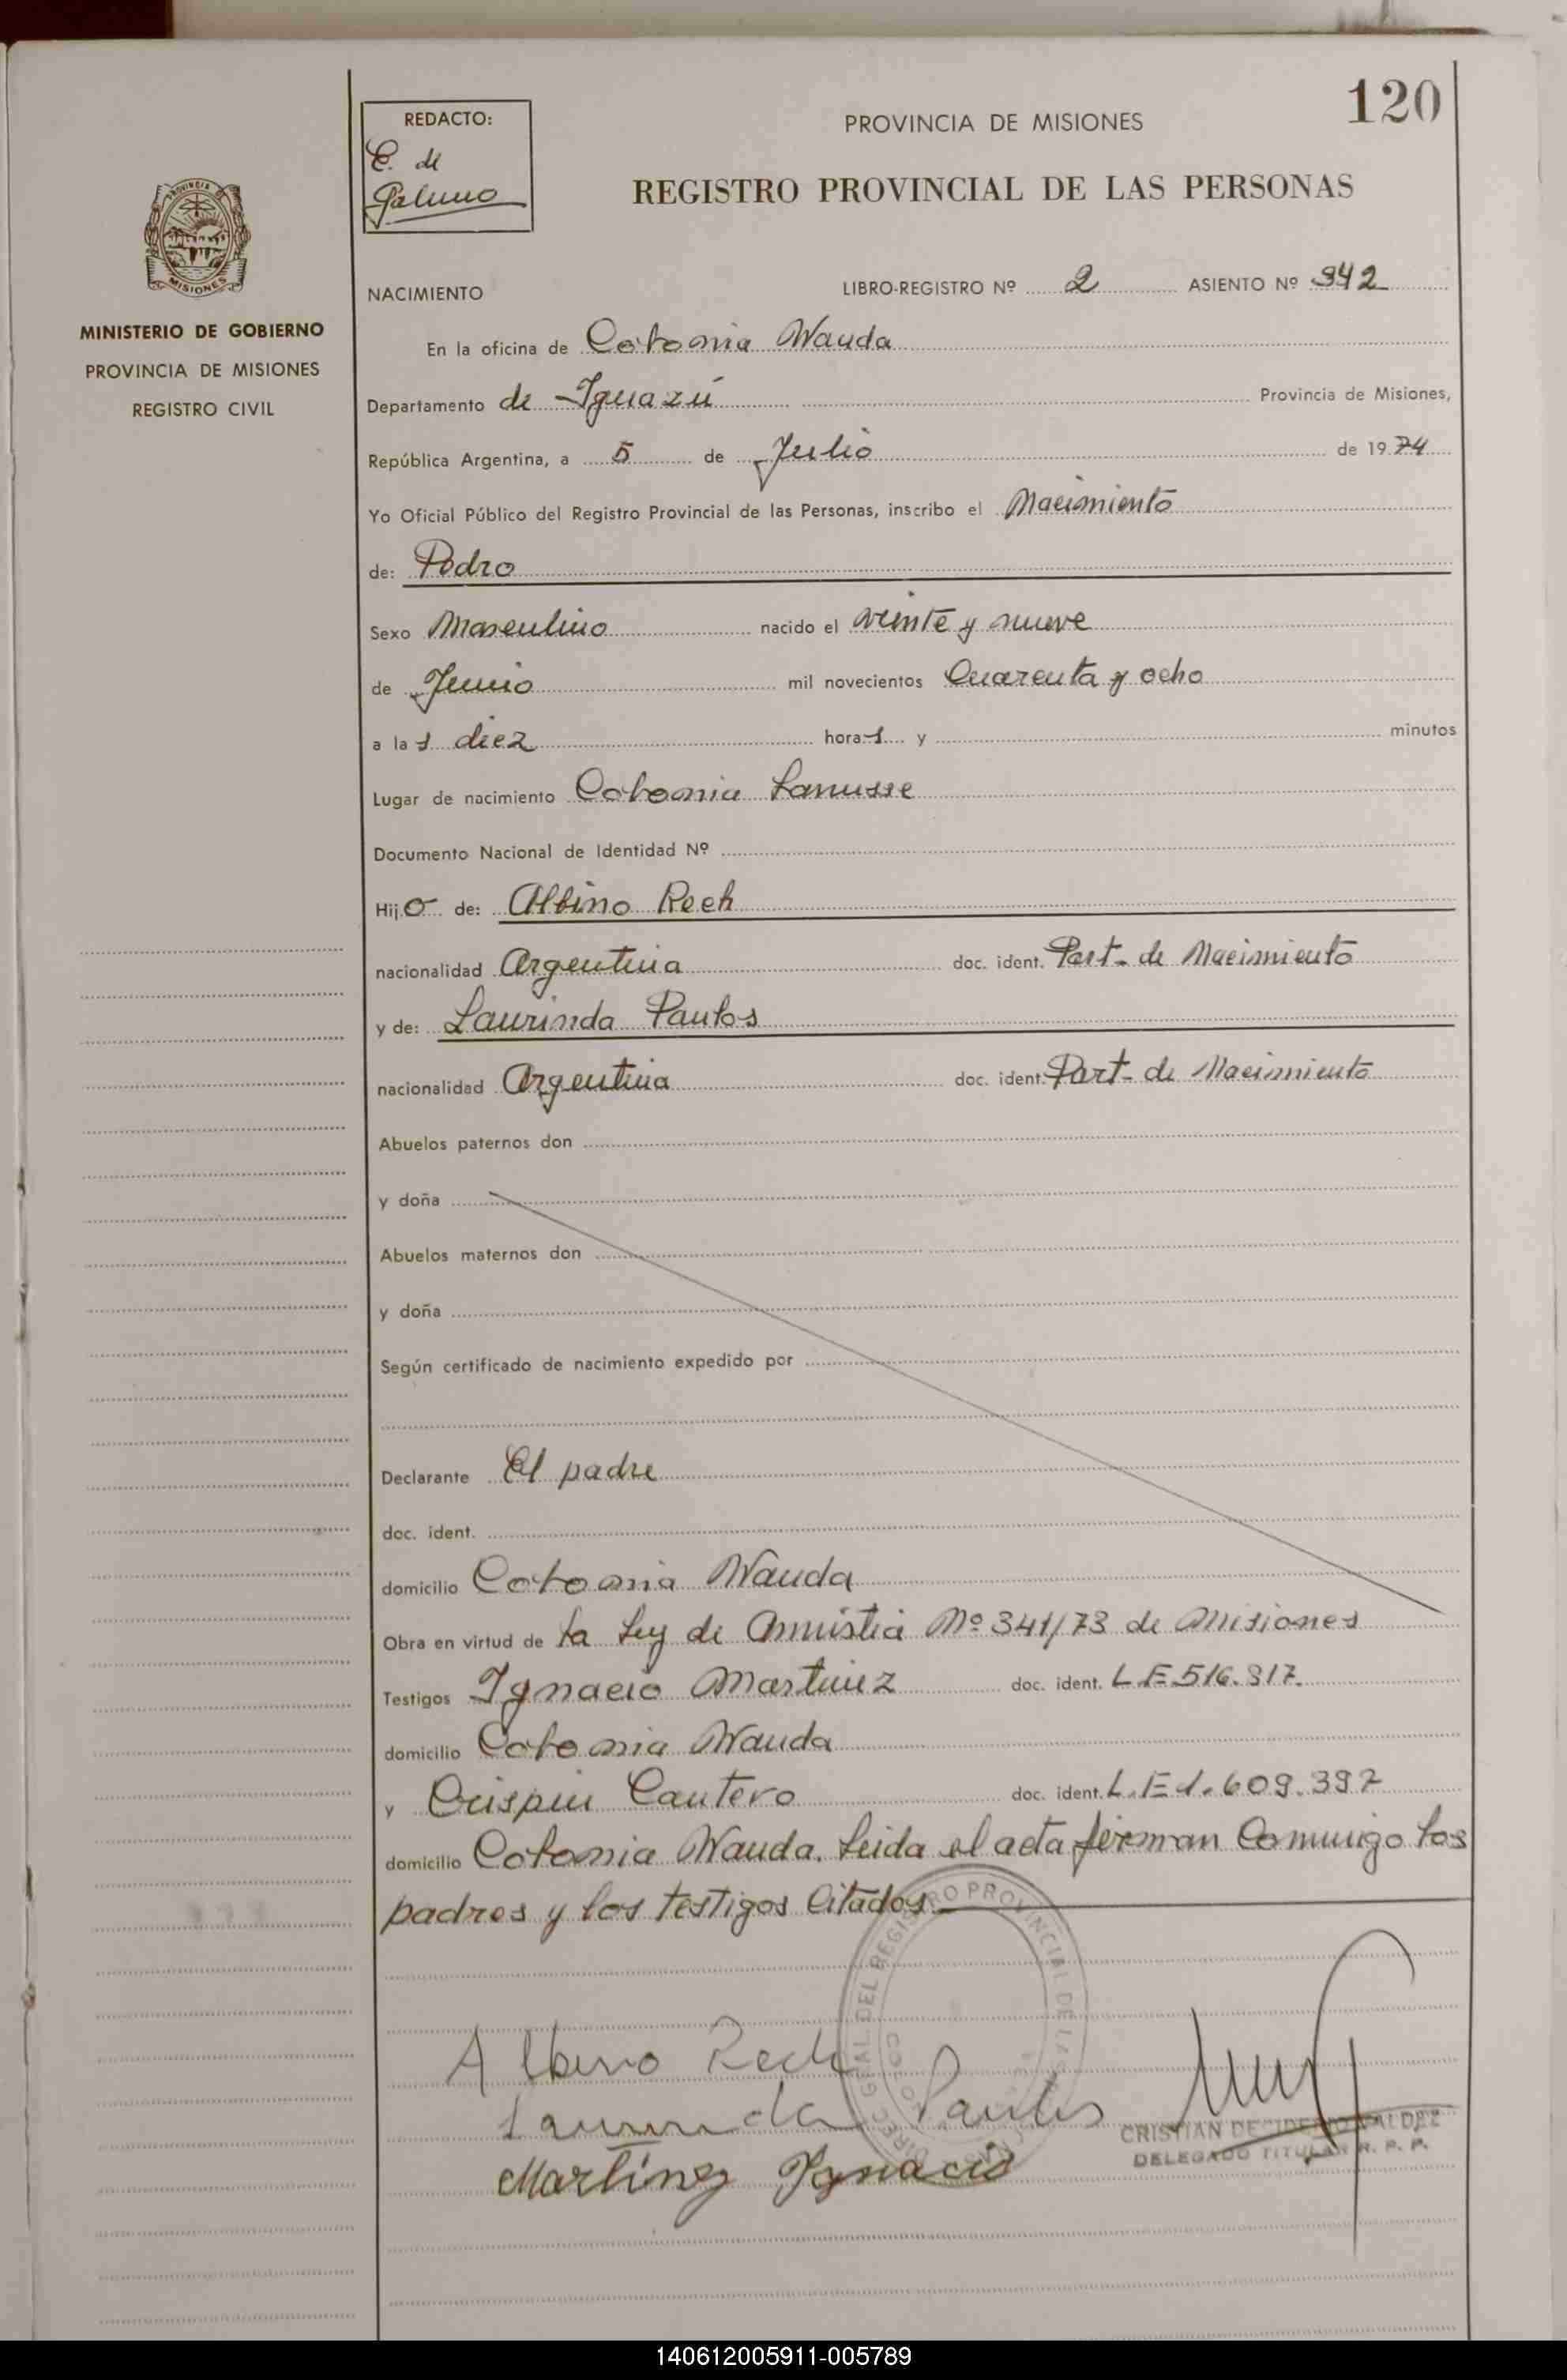 120
REDACTO:
C. de
Galuno
PROVINCIA DE MISIONES
REGISTRO PROVINCIAL DE LAS PERSONAS
PROVINCIA
MISIONES
MINISTERIO DE GOBIERNO
PROVINCIA DE MISIONES
REGISTRO CIVIL
NACIMIENTO LIBRO-REGISTRO Nº 2 ASIENTO Nº 342
En la oficina de Colonia Wanda
Departamento de Iguazú Provincia de Misiones,
República Argentina, a 5 de Julio de 1974
Yo Oficial Público del Registro Provincial de las Personas, inscribo el Nacimiento
de: Pedro
Sexo Masculino nacido el veinte y nueve
de Junio mil novecientos Cuarenta y ocho
a las diez horas y minutos
Lugar de nacimiento Colonia Lanusse
Documento Nacional de Identidad Nº
Hijo de: Albino Rech
nacionalidad Argentina doc. ident. Part- de Nacimiento
y de: Laurinda Paulos
nacionalidad Argentina doc. ident. Part- de Nacimiento
Abuelos paternos don
y doña
Abuelos maternos don
y doña
Según certificado de nacimiento expedido por
Declarante El padre
doc. ident.
domicilio Colonia Wanda
Obra en virtud de la Ley de Amnistia Nº 341/73 de Misiones
Testigos Ignacio Martinez doc. ident. L.E 516.317.
domicilio Colonia Wanda
y Crispin Cantero doc. ident. L.E 1.609.397
domicilio Colonia Wanda. Leida el acta firman Conmigo los
padres y los testigos Citados.
Albino Rech
Laurinda Paulos
Martinez Ignacio
CRISTIAN DECIDERIO VALDEZ
DELEGADO TITULAR R. P. P.
140612005911-005789